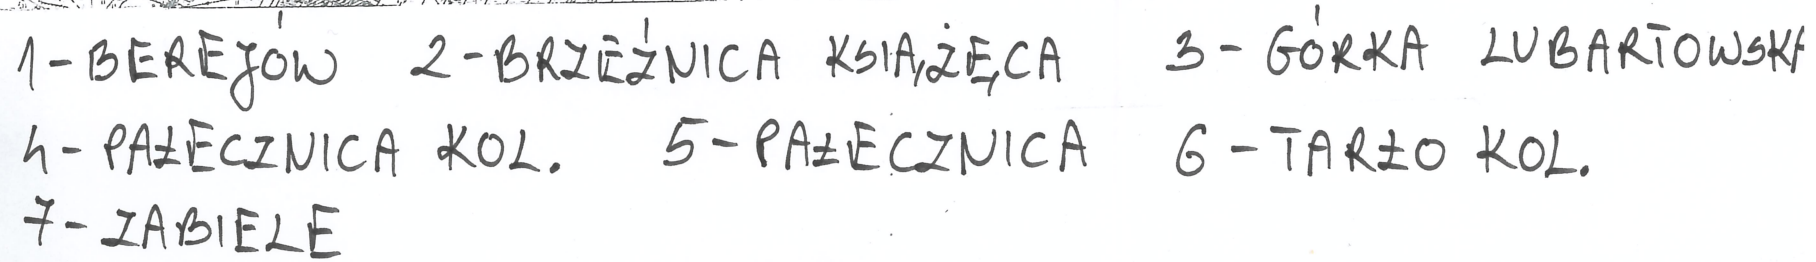 1-BEREJÓW 2-BRZEŹNICA KSIĄŻĘCA 3-GÓRKA LUBARTOWSKA
4-PAŁECZNICA KOL. 5-PAŁECZNICA 6-TARŁO KOL.
7-ZABIELE